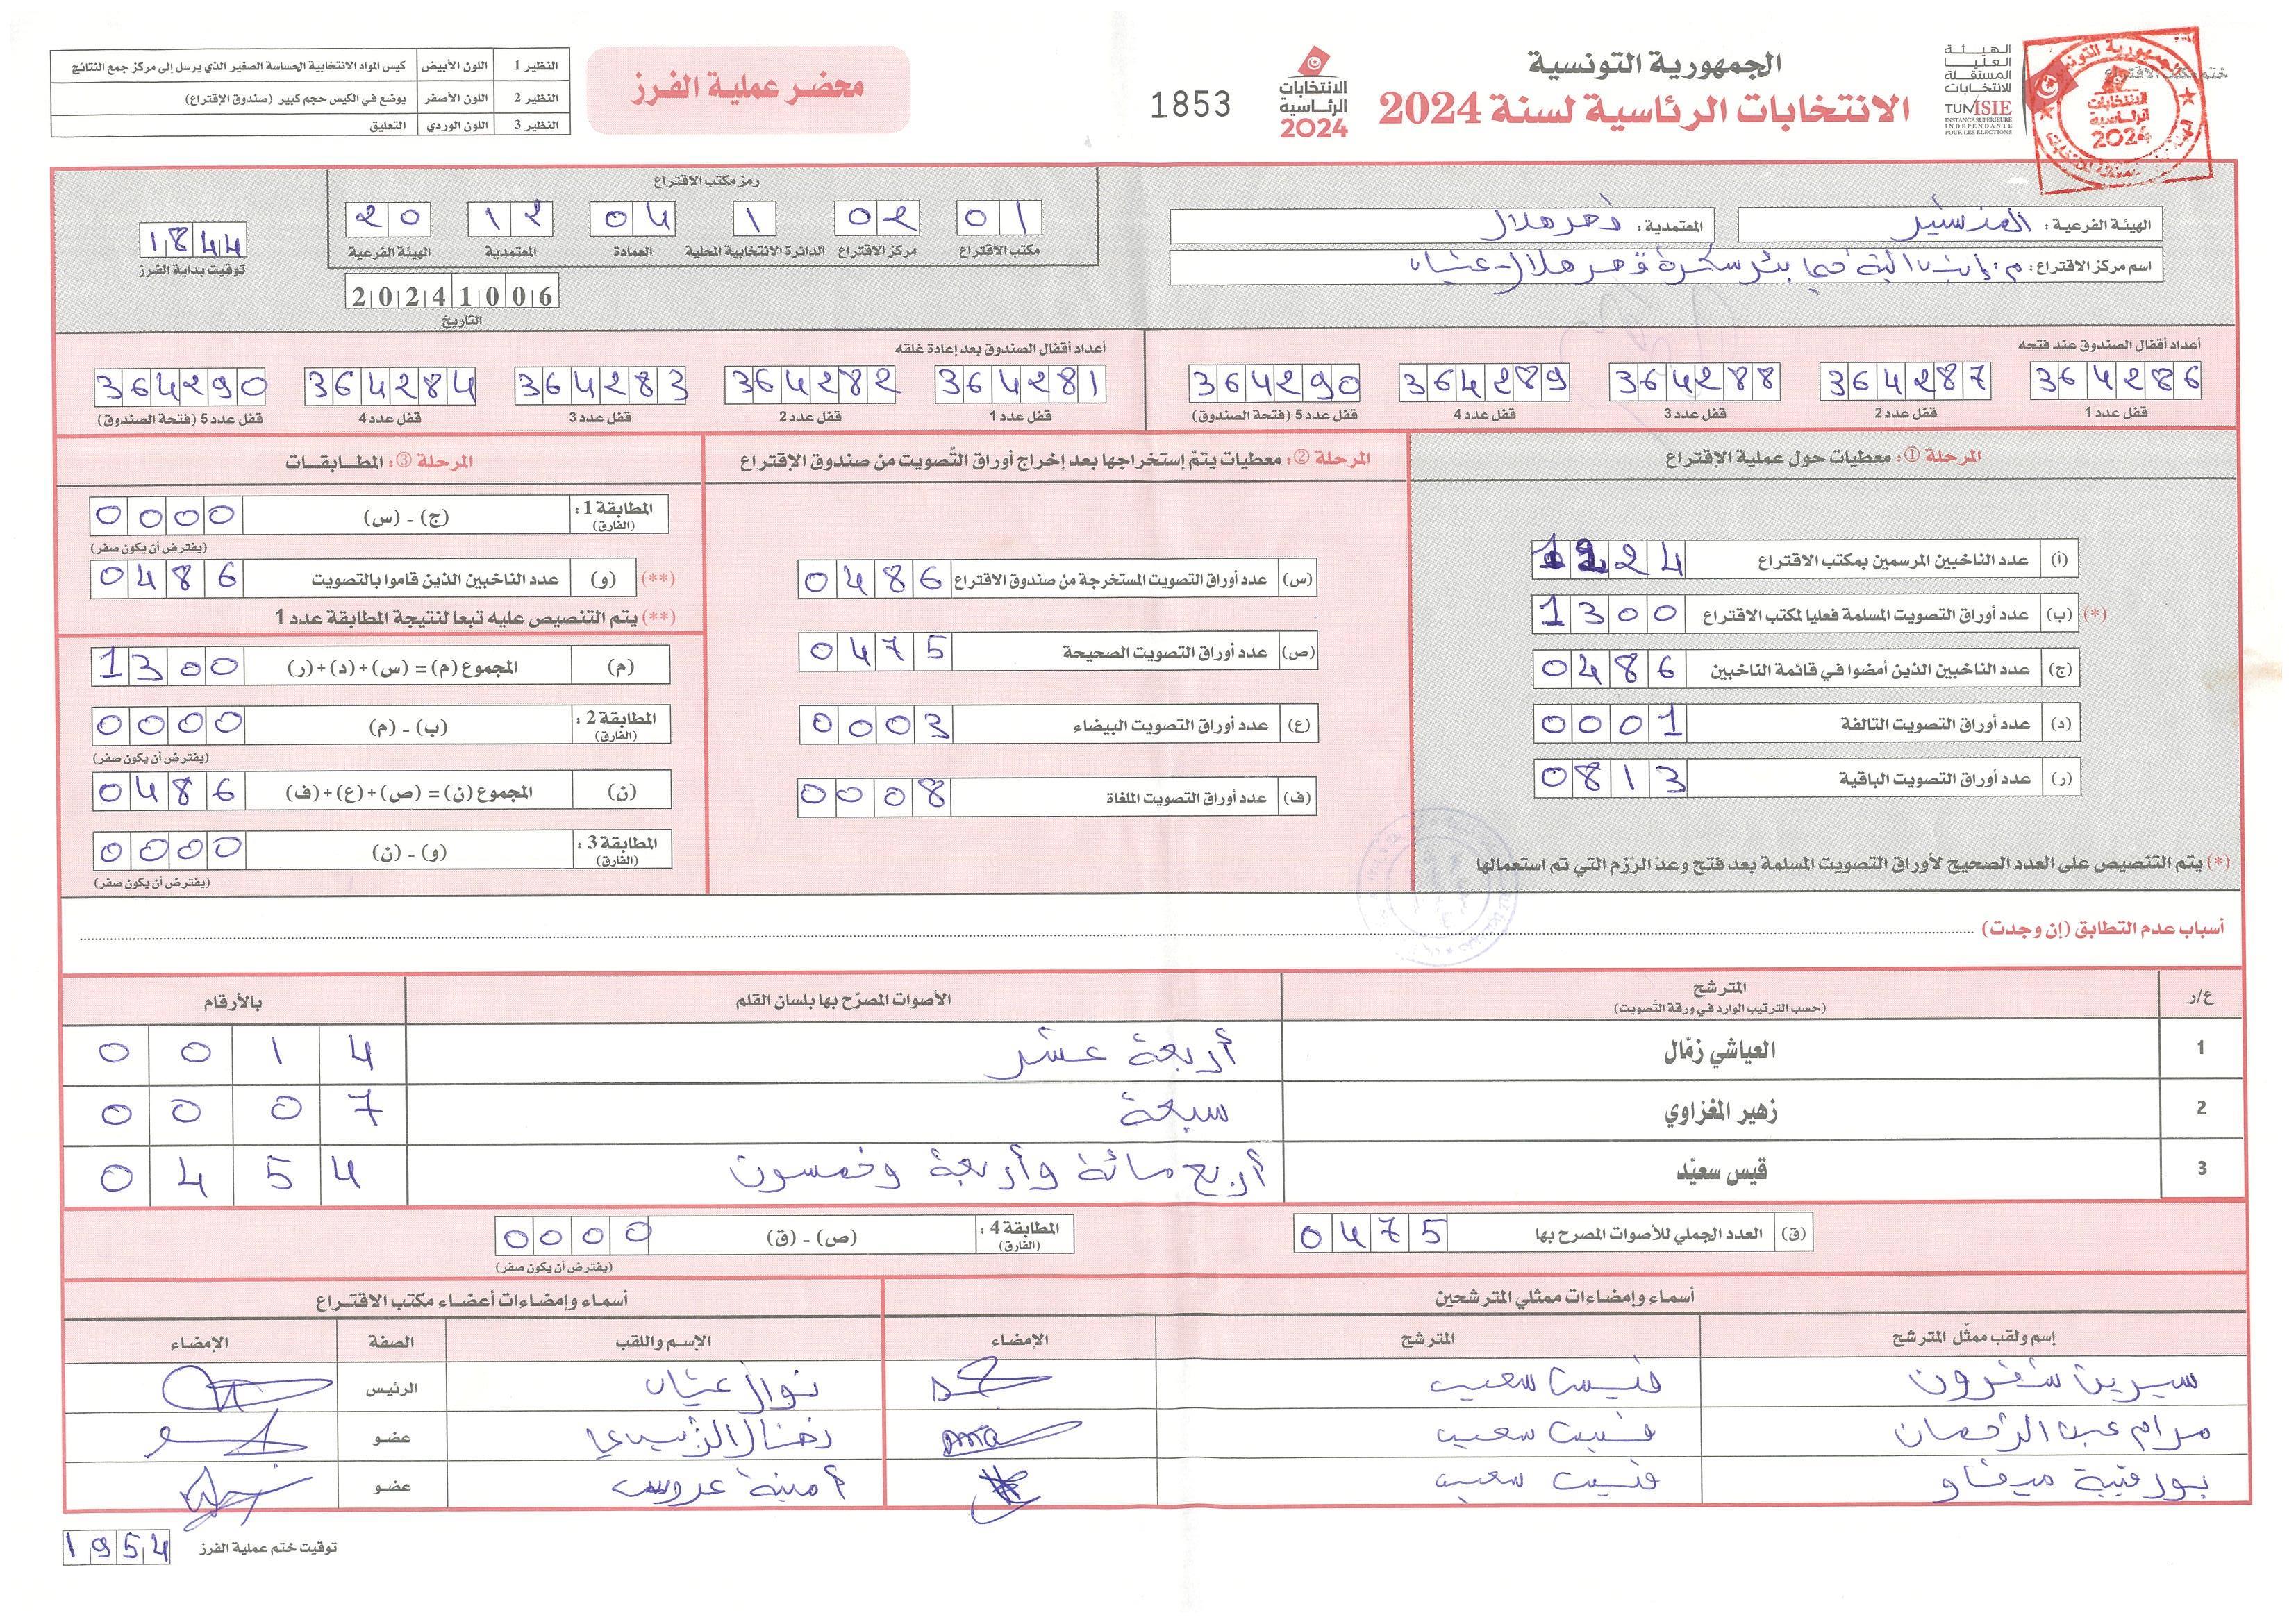 ختم مكتب الاقتراع
الهيئة العليا المستقلة للانتخابات
TUNISIE
INSTANCE SUPERIEURE
INDEPENDANTE
POUR LES ELECTIONS
الجمهورية التونسية
الانتخابات الرئاسية لسنة 2024
الانتخابات الرئاسية 2024
1853
محضر عملية الفرز
النظير 1 اللون الأبيض كيس المواد الانتخابية الحساسة الصغير الذي يرسل إلى مركز جمع النتائج
النظير 2 اللون الأصفر يوضع في الكيس حجم كبير (صندوق الإقتراع)
النظير 3 اللون الوردي التعليق
الهيئة الفرعية: المنستير
المعتمدية: قصر هلال
اسم مركز الاقتراع: قصر هلال
رمز مكتب الاقتراع
01 مكتب الاقتراع
02 مركز الاقتراع
1 الدائرة الانتخابية المحلية
04 العمادة
12 المعتمدية
20 الهيئة الفرعية
20241006
التاريخ
1844
توقيت بداية الفرز
أعداد أقفال الصندوق عند فتحه
364286 قفل عدد 1
364287 قفل عدد 2
364288 قفل عدد 3
364289 قفل عدد 4
364290 قفل عدد 5 (فتحة الصندوق)
أعداد أقفال الصندوق بعد إعادة غلقه
364281 قفل عدد 1
364282 قفل عدد 2
364283 قفل عدد 3
364284 قفل عدد 4
364290 قفل عدد 5 (فتحة الصندوق)
المرحلة ①: معطيات حول عملية الإقتراع
(أ) عدد الناخبين المرسمين بمكتب الاقتراع
(*) (ب) عدد أوراق التصويت المسلمة فعليا لمكتب الاقتراع 1300
(ج) عدد الناخبين الذين أمضوا في قائمة الناخبين 0486
(د) عدد أوراق التصويت التالفة 0001
(ر) عدد أوراق التصويت الباقية 0813
(*) يتم التنصيص على العدد الصحيح لأوراق التصويت المسلمة بعد فتح وعدّ الرّزم التي تم استعمالها
المرحلة ②: معطيات يتمّ إستخراجها بعد إخراج أوراق التّصويت من صندوق الإقتراع
(س) عدد أوراق التصويت المستخرجة من صندوق الاقتراع 0486
(ص) عدد أوراق التصويت الصحيحة 0475
(ع) عدد أوراق التصويت البيضاء 0003
(ف) عدد أوراق التصويت الملغاة 0008
المرحلة ③: المطابقات
المطابقة 1: (الفارق) (ج) - (س) 0000
(يفترض أن يكون صفر)
(**) (و) عدد الناخبين الذين قاموا بالتصويت 0486
(**) يتم التنصيص عليه تبعا لنتيجة المطابقة عدد 1
(م) المجموع (م) = (س) + (د) + (ر) 1300
المطابقة 2: (الفارق) (ب) - (م) 0000
(يفترض أن يكون صفر)
(ن) المجموع (ن) = (ص) + (ع) + (ف) 0486
المطابقة 3: (الفارق) (و) - (ن) 0000
(يفترض أن يكون صفر)
أسباب عدم التطابق (إن وجدت)
ع/ر المترشح الأصوات المصرّح بها بلسان القلم بالأرقام
(حسب الترتيب الوارد في ورقة التّصويت)
1 العياشي زمّال أربعة عشر 0014
2 زهير المغزاوي سبعة 0007
3 قيس سعيّد أربع مائة وأربعة وخمسون 0454
(ق) العدد الجملي للأصوات المصرح بها 0475
المطابقة 4: (الفارق) (ص) - (ق) 0000
(يفترض أن يكون صفر)
أسماء وإمضاءات ممثلي المترشحين
إسم ولقب ممثّل المترشح المترشح الإمضاء
سيرين شقرون قيس سعيد
مرام عبد الرحمان قيس سعيد
قيس سعيد
أسماء وإمضاءات أعضاء مكتب الاقتراع
الإسم واللقب الصفة الإمضاء
نوال الرئيس
عضو
أمينة عروس عضو
توقيت ختم عملية الفرز 1954